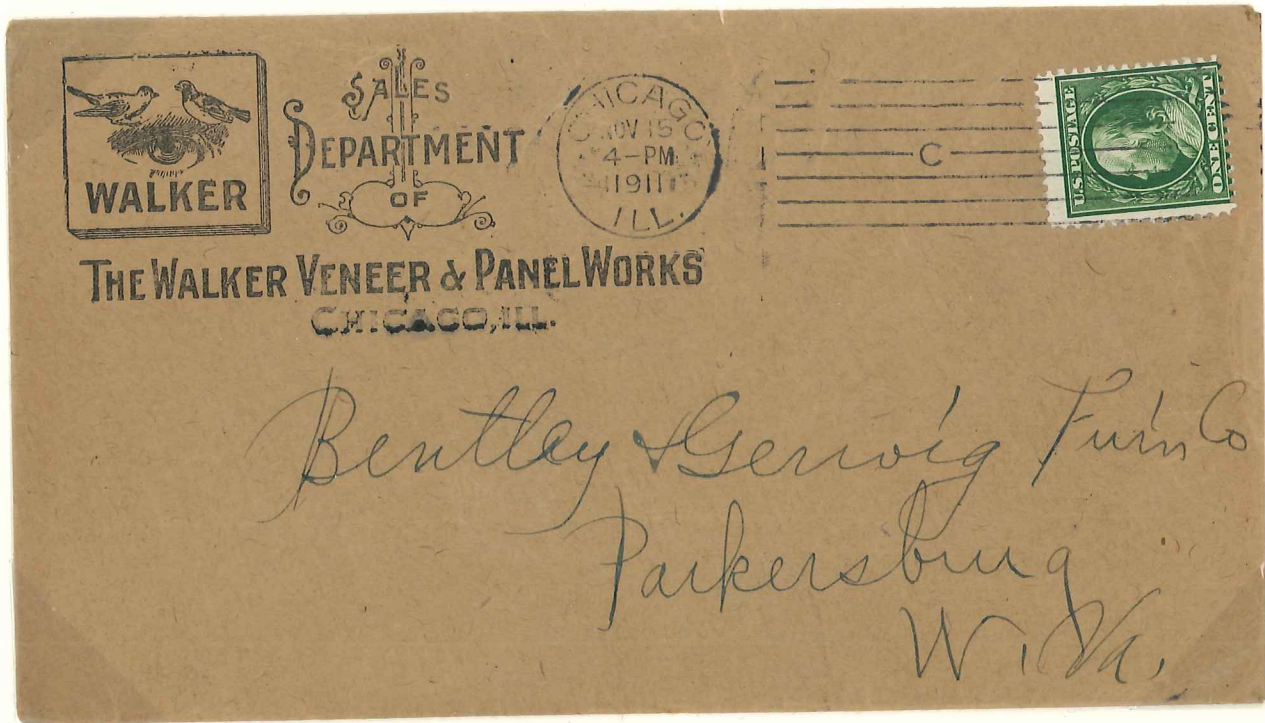 WALKER
SALES
DEPARTMENT
OF
THE WALKER VENEER & PANEL WORKS
CHICAGO, ILL.
CHICAGO
NOV 15
4-PM
1911
ILL.
C
U.S. POSTAGE
ONE CENT
Bentley & Gerwig Furn Co
Parkersburg
W. Va.